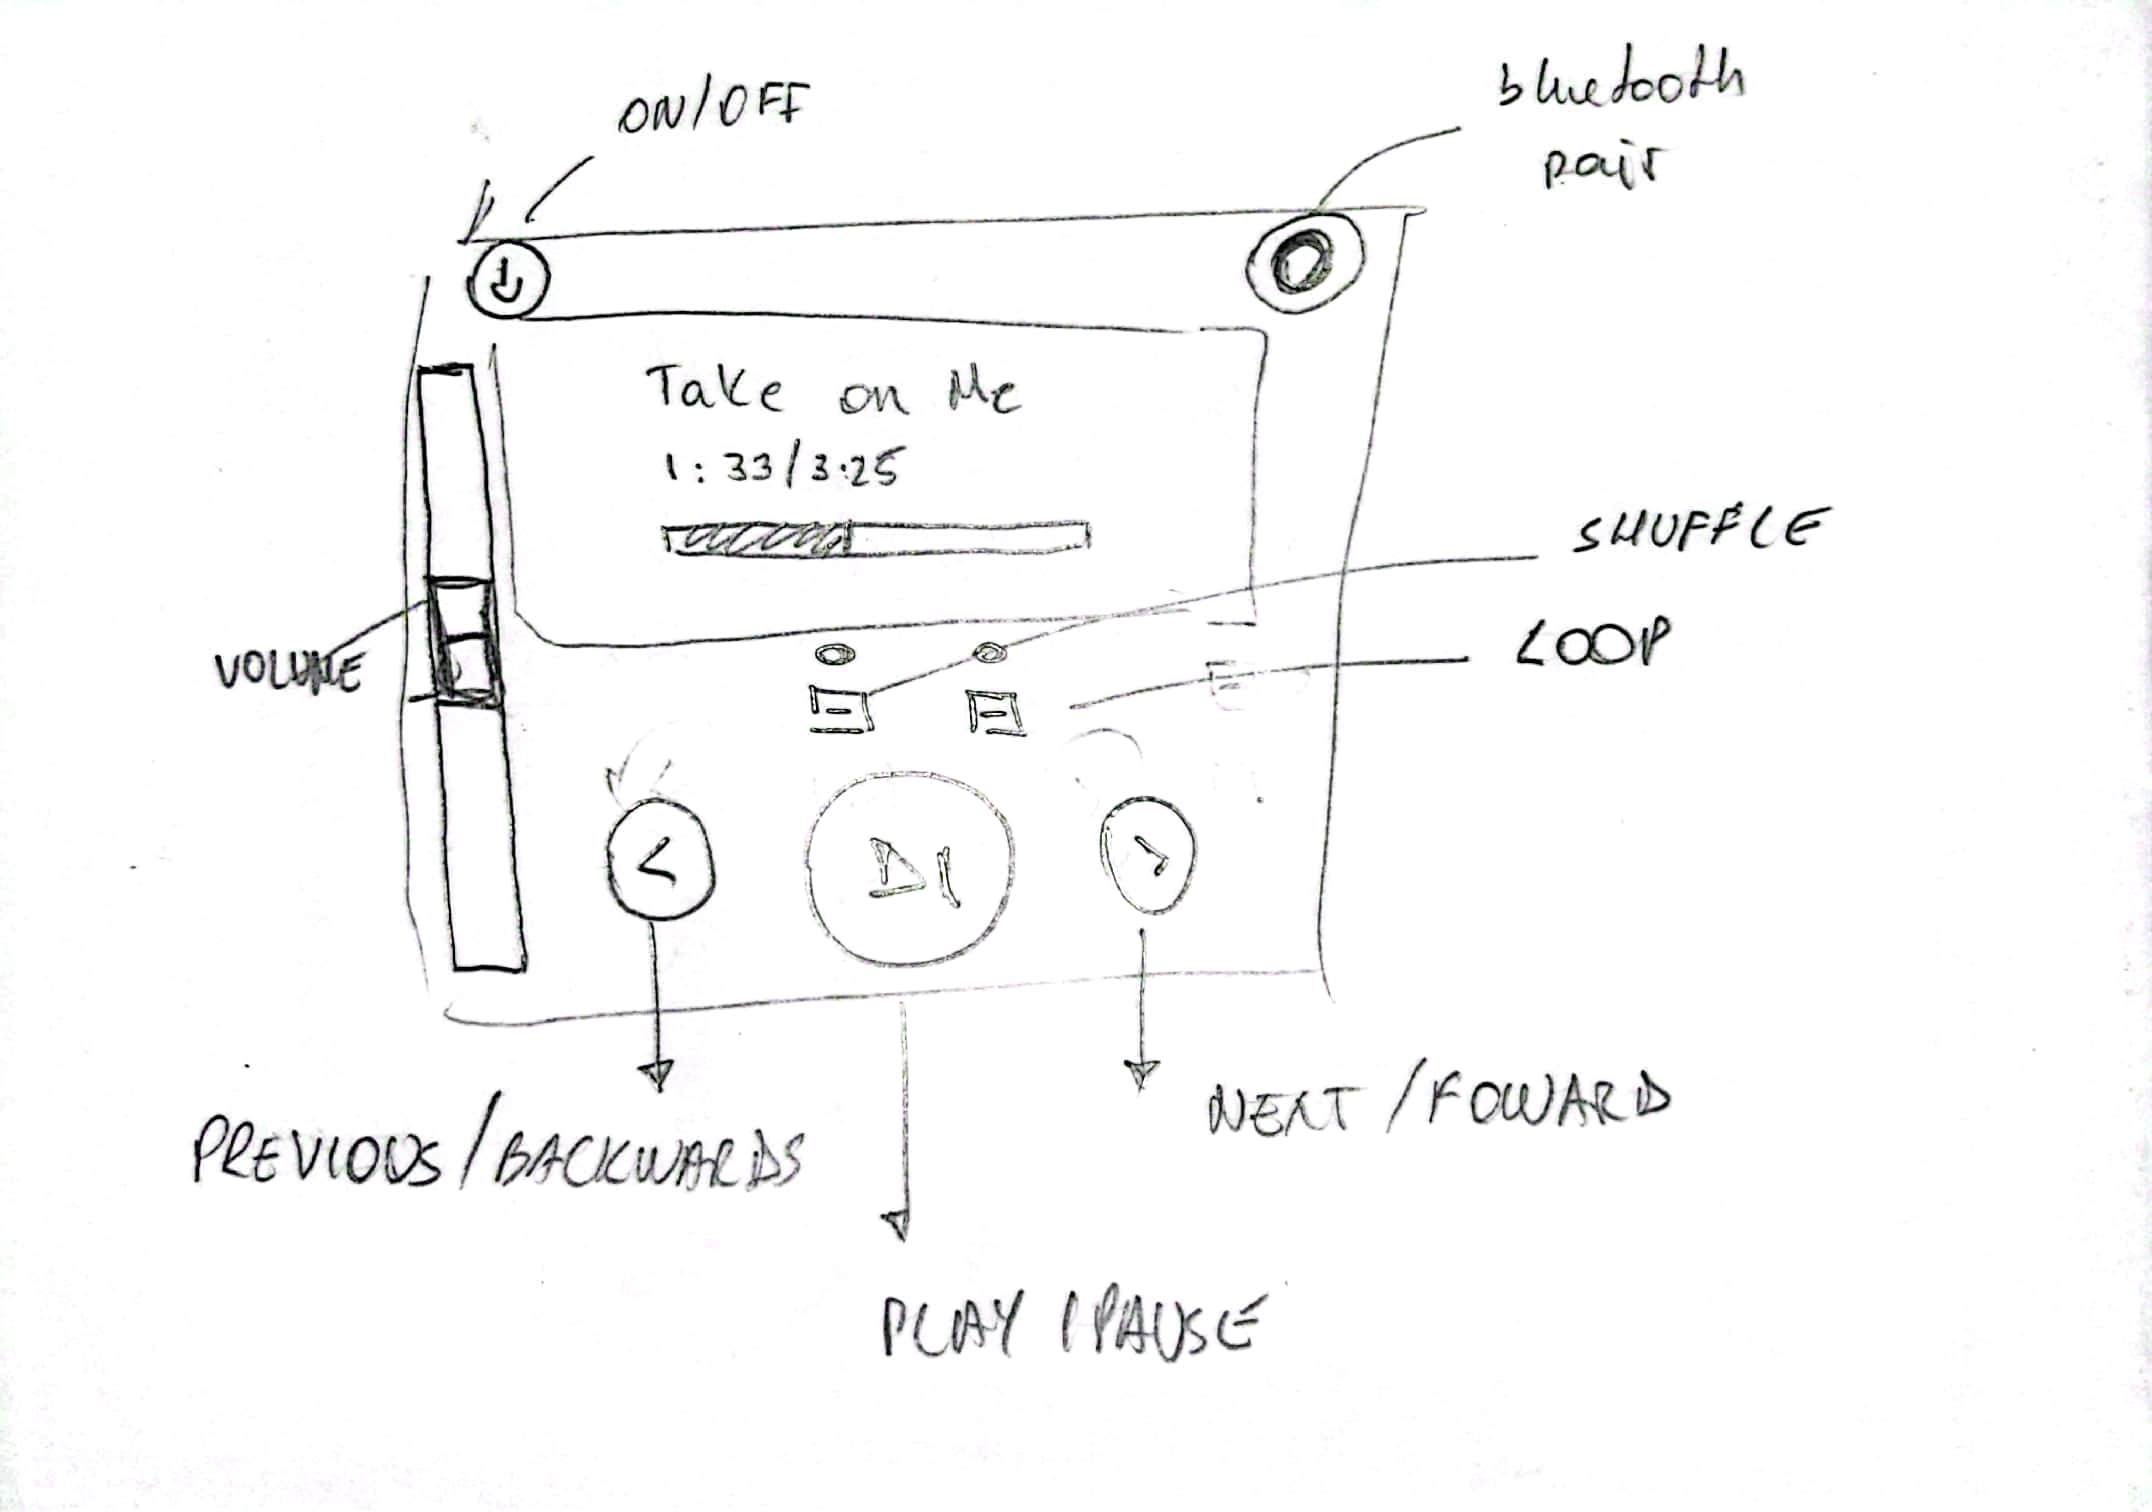 ON/OFF
bluetooth
pair
Take on Me
1:33/3:25
SHUFFLE
LOOP
VOLUME
<
>
PREVIOUS/BACKWARDS
NEXT/FOWARD
PLAY/PAUSE